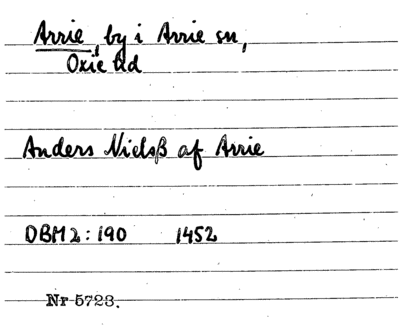 Arrie, by i Arrie sn,
Oxie hd
Anders Nielsß af Arrie
DBM2: 190 1452
Nr 5723.